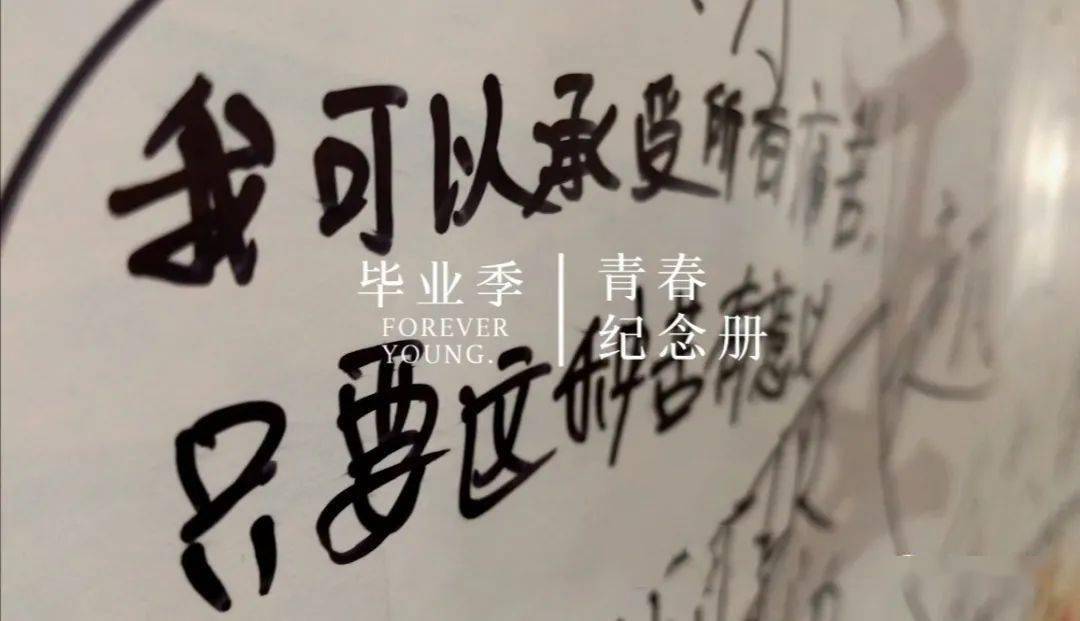 我可以承受所有痛苦
毕业季
FOREVER
YOUNG.
青春
纪念册
只要这种苦有意义